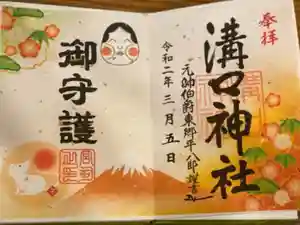 奉拝
溝口神社
元帥伯爵東郷平八郎謹書
令和二年三月五日
御守護